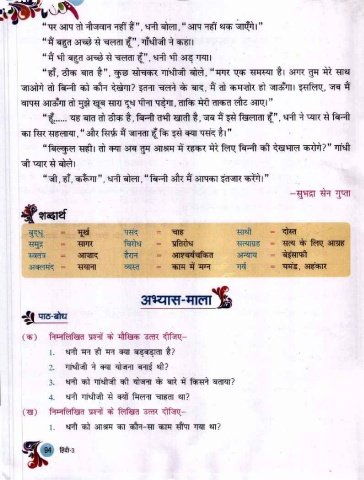 "पर आप तो नौजवान नहीं हैं", धनी बोला, "आप नहीं थक जाएँगे।"
"मैं बहुत अच्छे से चलता हूँ", गाँधीजी ने कहा।
"मैं भी बहुत अच्छे से चलता हूँ", धनी भी अड़ गया।
"हाँ, ठीक बात है", कुछ सोचकर गांधीजी बोले, "मगर एक समस्या है। अगर तुम मेरे साथ
जाओगे तो बिन्नी को कौन देखेगा? इतना चलने के बाद, मैं तो कमजोर हो जाऊँगा। इसलिए, जब मैं
वापस आऊँगा तो मुझे खूब सारा दूध पीना पड़ेगा, ताकि मेरी ताकत लौट आए।"
"हूँ...... यह बात तो ठीक है, बिन्नी तभी खाती है, जब मैं इसे खिलाता हूँ", धनी ने प्यार से बिन्नी
का सिर सहलाया, "और सिर्फ़ मैं जानता हूँ कि इसे क्या पसंद है।"
"बिल्कुल सही। तो क्या अब तुम आश्रम में रहकर मेरे लिए बिन्नी की देखभाल करोगे?" गांधी
जी प्यार से बोले।
"जी, हाँ, करूँगा", धनी बोला, "बिन्नी और मैं आपका इंतजार करेंगे।"
–सुभद्रा सेन गुप्ता
शब्दार्थ
बुद्धू = मूर्ख पसंद = चाह साथी = दोस्त
समुद्र = सागर विरोध = प्रतिरोध सत्याग्रह = सत्य के लिए आग्रह
स्वतंत्र = आजाद हैरान = आश्चर्यचकित अन्याय = बेइंसाफी
अक्लमंद = सयाना व्यस्त = काम में मग्न गर्व = घमंड, अहंकार
अभ्यास-माला
पाठ-बोध
(क) निम्नलिखित प्रश्नों के मौखिक उत्तर दीजिए–
1. धनी मन ही मन क्या बड़बड़ाता है?
2. गांधीजी ने क्या योजना बनाई थी?
3. धनी को गांधीजी की योजना के बारे में किसने बताया?
4. धनी गांधीजी से क्यों मिलना चाहता था?
(ख) निम्नलिखित प्रश्नों के लिखित उत्तर दीजिए–
1. धनी को आश्रम का कौन-सा काम सौंपा गया था?
94 हिंदी-3